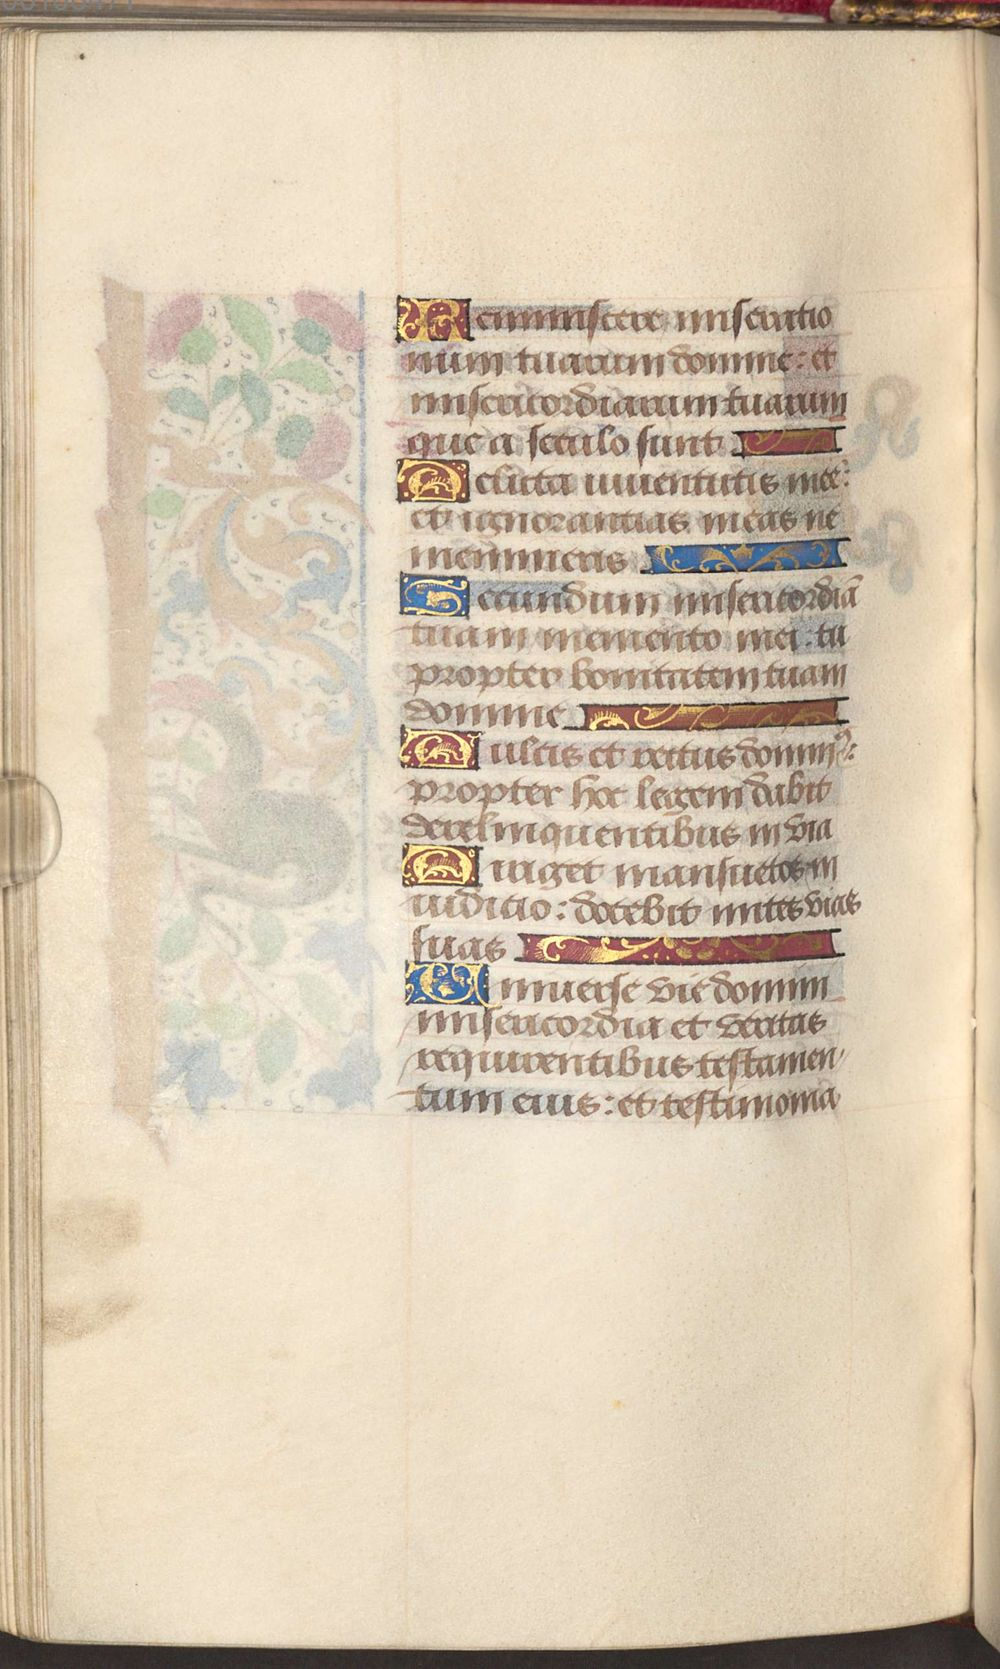 Reminiscere miseratio
num tuarum domine: et
misericordiarum tuarum
que a seculo sunt
Delicta iuuentutis mee:
et ignorantias meas ne
memineris
Secundum misericordiā
tuam memento mei: tu
propter bonitatem tuam
domine
Dulcis et rectus dominꝰ:
propter hoc legem dabit
derelinquentibus in via
Diriget mansuetos in
iudicio: docebit mites vias
suas
Uniuerse vie domini
misericordia et veritas
requirentibus testamen
tum eius: et testimonia